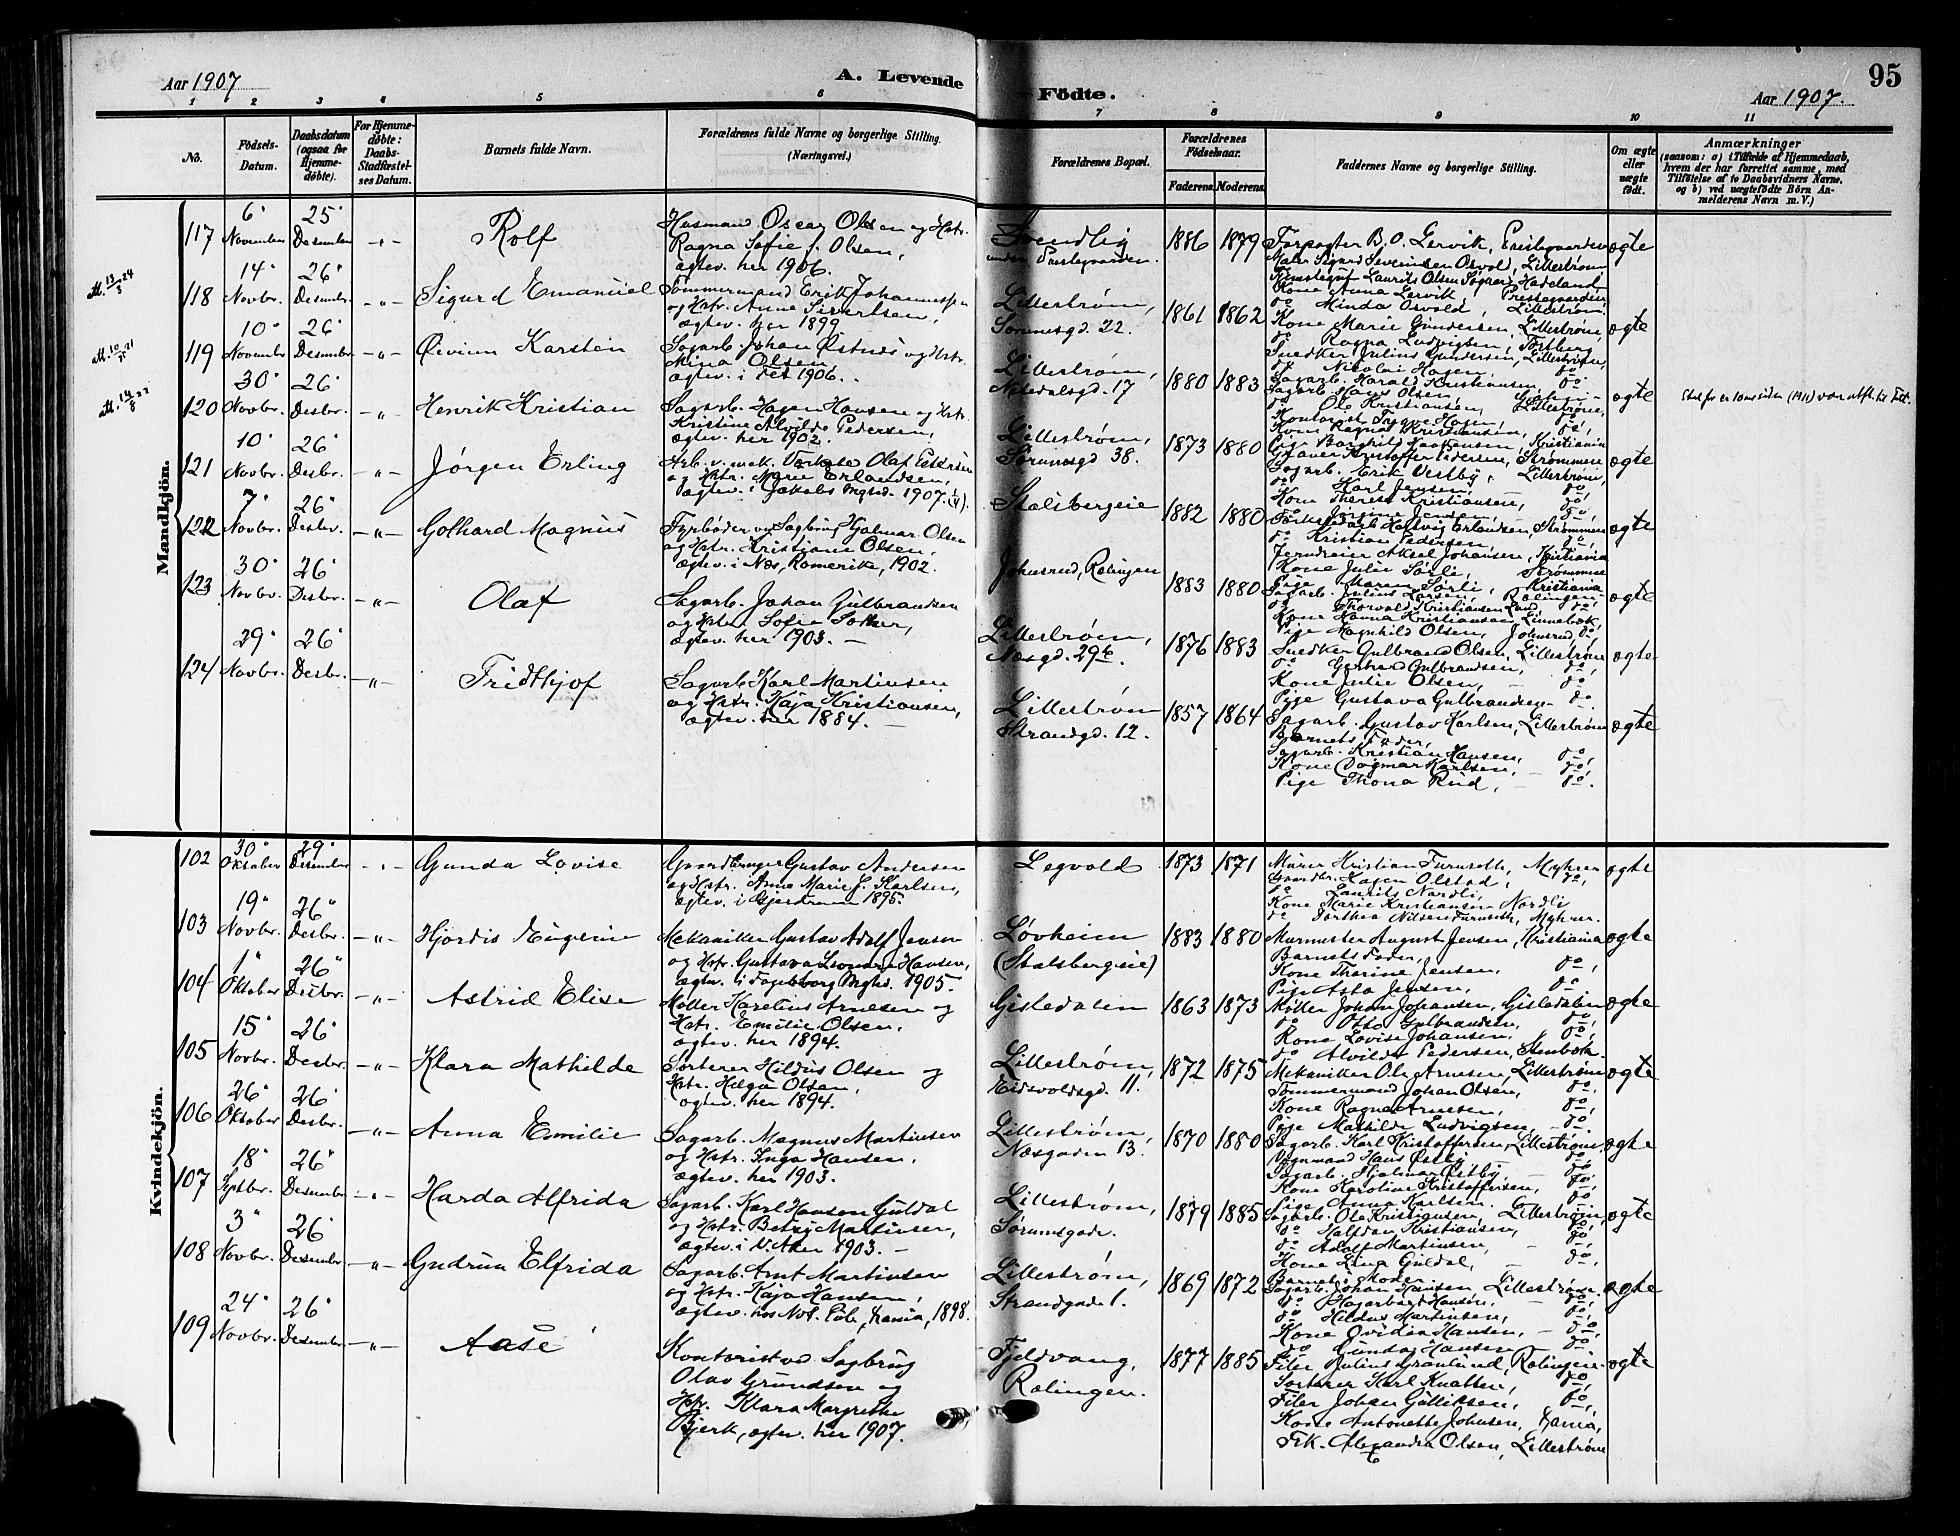 Aar 1907
A. Levende
Fødte.
95
Aar 1907.
1 2 3 4 5 6 7 8 9 10 11
No.
Fødsels-
Datum.
Daabsdatum
(ogsaa for
Hjemme-
døbte).
For Hjemme-
døbte:
Daabs-
Stadfæstel-
ses Datum.
Barnets fulde Navn.
Forældrenes fulde Navne og borgerlige Stilling.
(Næringsvei.)
Forældrenes Bopæl.
Forældrenes
Fødselsaar.
Faderens. Moderens.
Faddernes Navne og borgerlige Stilling.
Om ægte
eller
uægte
født.
Anmærkninger
(saasom: a) i Tilfælde af Hjemmedaab,
hvem der har forrettet samme, med
Tilføielse af to Daabsvidners Navne,
og b) ved uægtefødte Børn An-
melderens Navn m.V.)
Mandkjøn.
117 6' November 25' Desember Rolf
Husmand Oscar Olsen og Hstr.
Ragna Sofie f. Olsen,
ægtev. her 1906.
under Prestegaarden.
1886 1879
Forpagter B. O. Lervik, Prestegaarden
Maler Sigurd Severinsen Osvold, Lillestrøm
Kone Anna Lervik Prestegaarden
do Minda Osvold, Lillestrøm
ægte
118 14' Novbr. 26' Desember Sigurd Emanuel
Tømmermand Erik Johannessen
og Hstr. Anne Sivertsen,
ægtev. her 1899
Lillestrøm,
Sørumsgd. 22.
1861 1862
Kone Marie Gundersen, Lillestrøm,
do Ragna Ludvigsen,
Snedker Julius Gundersen, Lillestrøm,
do Nicolai Hagen do
ægte
119 10' November 26' Desember Øivinn Karsten
Sagarb. Johan Østnes og Hstr.
Mina Olsen
ægtev. i Fet 1906.
Lillestrøm,
Nitedalsgd. 17
1880 1883
Sagarb. Harald Kristiansen, do
Sagarb. Hans Olsen,
do Ole Kristiansen, Lillestrøm,
Kontorist Trygve Hagen,
Kone Ragna Kristiansen, do,
ægte
120 30' Novbr. 26' Desbr. Henrik Kristian
Sagarb. Hagen Hansen og Hstr.
Kristine Alvilde Pedersen,
ægtev. her 1902.
Lillestrøm,
Sørumsgd 38.
1873 1880
Pige Borghild Haakensen, Kristiania
Graver Kristoffer Pedersen, Strømmen
Sagarb. Erik Vestby, Lillestrøm,
do Karl Jensen, do,
Kone Therese Kristiansen, do,
ægte
121 10' Novbr. 26' Desbr. Jørgen Erling
Arb. v. mek. Værksted Olaf Pedersen
og Hstr. Marie Erlandsen,
ægtev. i Jakobs Mghd. 1907.
Stalsbergeie
1882 1880
do Kristian Pedersen do,
Jerndreier Aksel Johansen, Kristiania
Kone Julie Sørli, Strømmen
Pige Maren Sørli, Kristiania
ægte
122 7' Novbr. 26' Desbr. Gothard Magnus
Fyrbøder ved Sagbrug Hjalmar Olsen
og Hstr. Kristiane Olsen,
ægtev. i Næs, Romerike, 1902.
Johnsrud, Rælingen
1883 1880
Sagarb. Julius Larsen, Rælingen
do Thorvald Kristiansen Lund, do,
Kone Hanna Kristiansen, Linnebæk,
Pige Magnhild Olsen, Johnsrud,
ægte
123 30' Novbr. 26' Desbr. Olaf
Sagarb. Johan Gulbrandsen
og Hstr. Sofie
ægtev. her 1903.
Lillestrøm,
Næsgd. 29b.
1876 1883
Snedker Gulbrand Olsen, Lillestrøm
do Gerhard Gulbrandsen, do,
Kone Julie Olsen, do,
Pige Gustava Gulbrandsen do
ægte
124 29' Novbr. 26' Desbr. Fridthjof
Sagarb. Karl Martinsen
og Hstr. Kaja Kristiansen,
ægtev. her 1884.
Lillestrøm
Strandgd. 12.
1857 1864
Sagarb. Gustav Karlsen, Lillestrøm
Barnets Fader,
Sagarb. Kristian Hansen, do,
Kone Dagmar Karlsen, do,
Pige Thona Rud, do,
ægte
Kvindekjøn.
102 30' Oktober 29' Desember Gunda Lovise
Gaardbruger Gustav Andersen
og Hstr. Anne Marie f. Karlsen,
ægtev. i Gjerdrum 1895.
Legvold
1873 1871
Murer Kristian Furuseth, Myhrer
Gaardbr. Hagen Olstad, do,
do Laurits Nordli,
Kone Marie Kristiansen Nordli
do Dorthea Nilsen Furuseth, Myhrer.
ægte
103 19' Novbr. 26' Desbr. Hjordis Eugenie
Mekaniker Gustav Adolf Jensen
og Hstr. Gustava Leonora Hansen,
ægtev. i Fagerborg Mghd. 1905.
Løvheim
(Stalsbergeie)
1883 1880
Murmester August Jensen, Kristiania
Barnets Fader,
Kone Thorine Jensen, do,
Pige Asta Jensen, do
ægte
104 1' Oktober 26' Desbr. Astrid Elise
Møller Karelius Arnesen og
Hstr. Emilie Olsen,
ægtev. her 1894.
Gisledalen
1863 1873
Møller Johan Johansen, Gisledalen
do Otto Gulbrandsen, do,
Kone Lovise Johansen, do,
do Alvilde Pedersen, Stenbæk.
ægte
105 15' Novbr. 26' Desbr. Klara Mathilde
Sorterer Hildus Olsen og
Hstr. Helga Olsen,
ægtev. her 1894.
Lillestrøm,
Eidsvoldsgd. 11.
1872 1875
Mekaniker Ole Arnesen, Lillestrøm
Tømmermand Johan Olsen, do,
Kone Ragna Arnesen, do,
Pige Mathilde Ludvigsen, do.
ægte
106 26' Oktober 26' Desbr. Anna Emilie
Sagarb. Magnus Martinsen
og Hstr. Inga Hansen,
ægtev. her 1903.
Lillestrøm,
Næsgaden 13.
1870 1880
Sagarb. Karl Kristoffersen, Lillestrøm,
Vognmand Hans Østby do
Sagarb. Hjalmar Østby do
Kone Karoline Kristoffersen, do,
Pige Anna Karlsen do
ægte
107 18' Septbr. 26' Desember Harda Alfrida
Sagarb. Karl Hansen Guldal
og Hstr. Betzy Martinsen,
ægtev. i V. Aker 1903.
Lillestrøm,
Sørumsgade.
1879 1885
Sagarb. Ole Kristiansen, Lillestrøm,
do Halfdan Kristiansen, do,
do Adolf Martinsen, do,
Kone Lina Guldal, do,
Barnets Moder
ægte
108 3' Novbr. 26' Desember Gudrun Elfrida
Sagarb. Amt Martinsen
og Hstr. Kaja Hansen,
ægtev. hos Not. Pub., Krania, 1898.
Lillestrøm,
Strandgade 1.
1869 1872
Sagarb. Johan Hansen Lillestrøm.
do Hagarbard Hansen, do,
do Hildus Martinsen, do,
Kone Ovidia Hansen, do,
do Gunda Hansen do,
ægte
109 24' Novbr. 26' Desember Aase
Kontorist ved Sagbrug
Olav Grundsen og
Hstr. Klara Margrethe
Bjerk, ægtev. her 1907.
Fjeldvang,
Rælingen.
1877 1885
Filer Julius Granlund, Rælingen
Sorterer Karl Knatten, do,
Filer Johan Gulliksen, do,
Kone Antonette Johnsen, Krania,
Frk. Alexandra Olsen, Lillestrøm
ægte